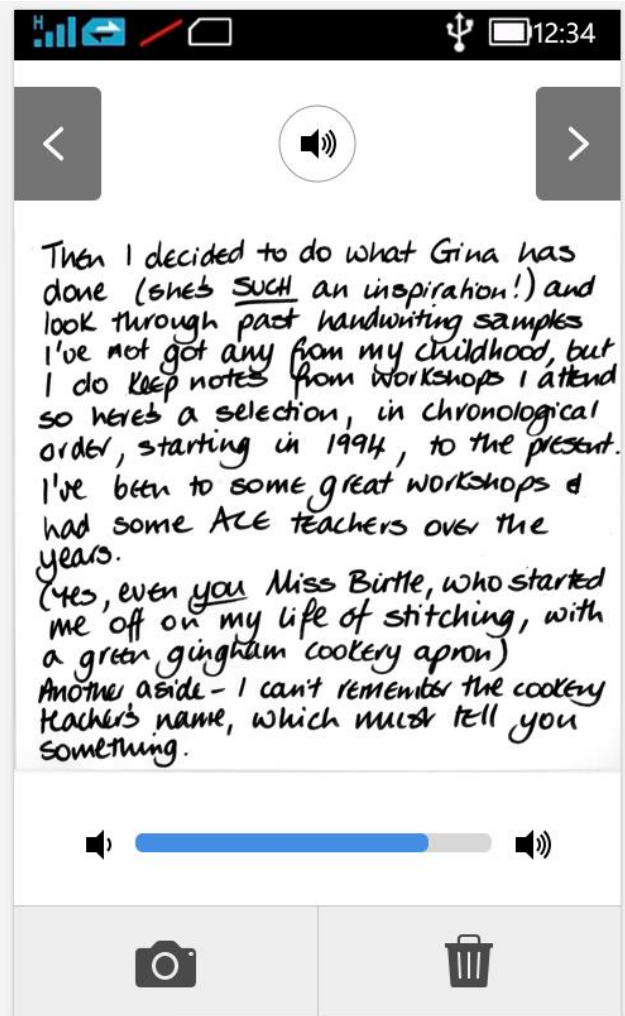 H 12:34
Then I decided to do what Gina has
done (she's SUCH an inspiration!) and
look through past handwriting samples
I've not got any from my childhood, but
I do keep notes from workshops I attend
so here's a selection, in chronological
order, starting in 1994, to the present.
I've been to some great workshops &
had some ACE teachers over the
years.
(Yes, even you Miss Birtle, who started
me off on my life of stitching, with
a green gingham cookery apron)
Another aside - I can't remember the cookery
teacher's name, which must tell you
something.